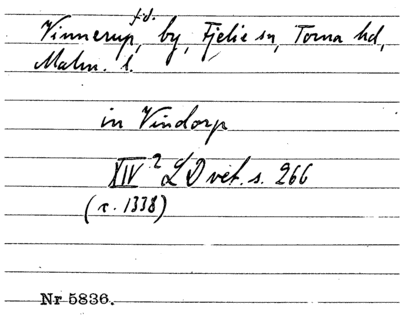 Vinnerup, f.d. by, Fjelie sn, Torna hd,
Malm. l.
in Vindorp
XIV 2 LD vet. s. 266
(c. 1338)
Nr 5836.